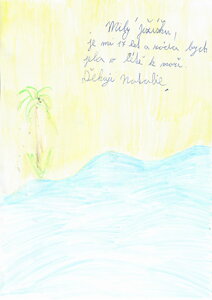 Milý Ježíšku!
je mi 17 let a ráda bych
jela v létě k moři.
Děkuji Natálie